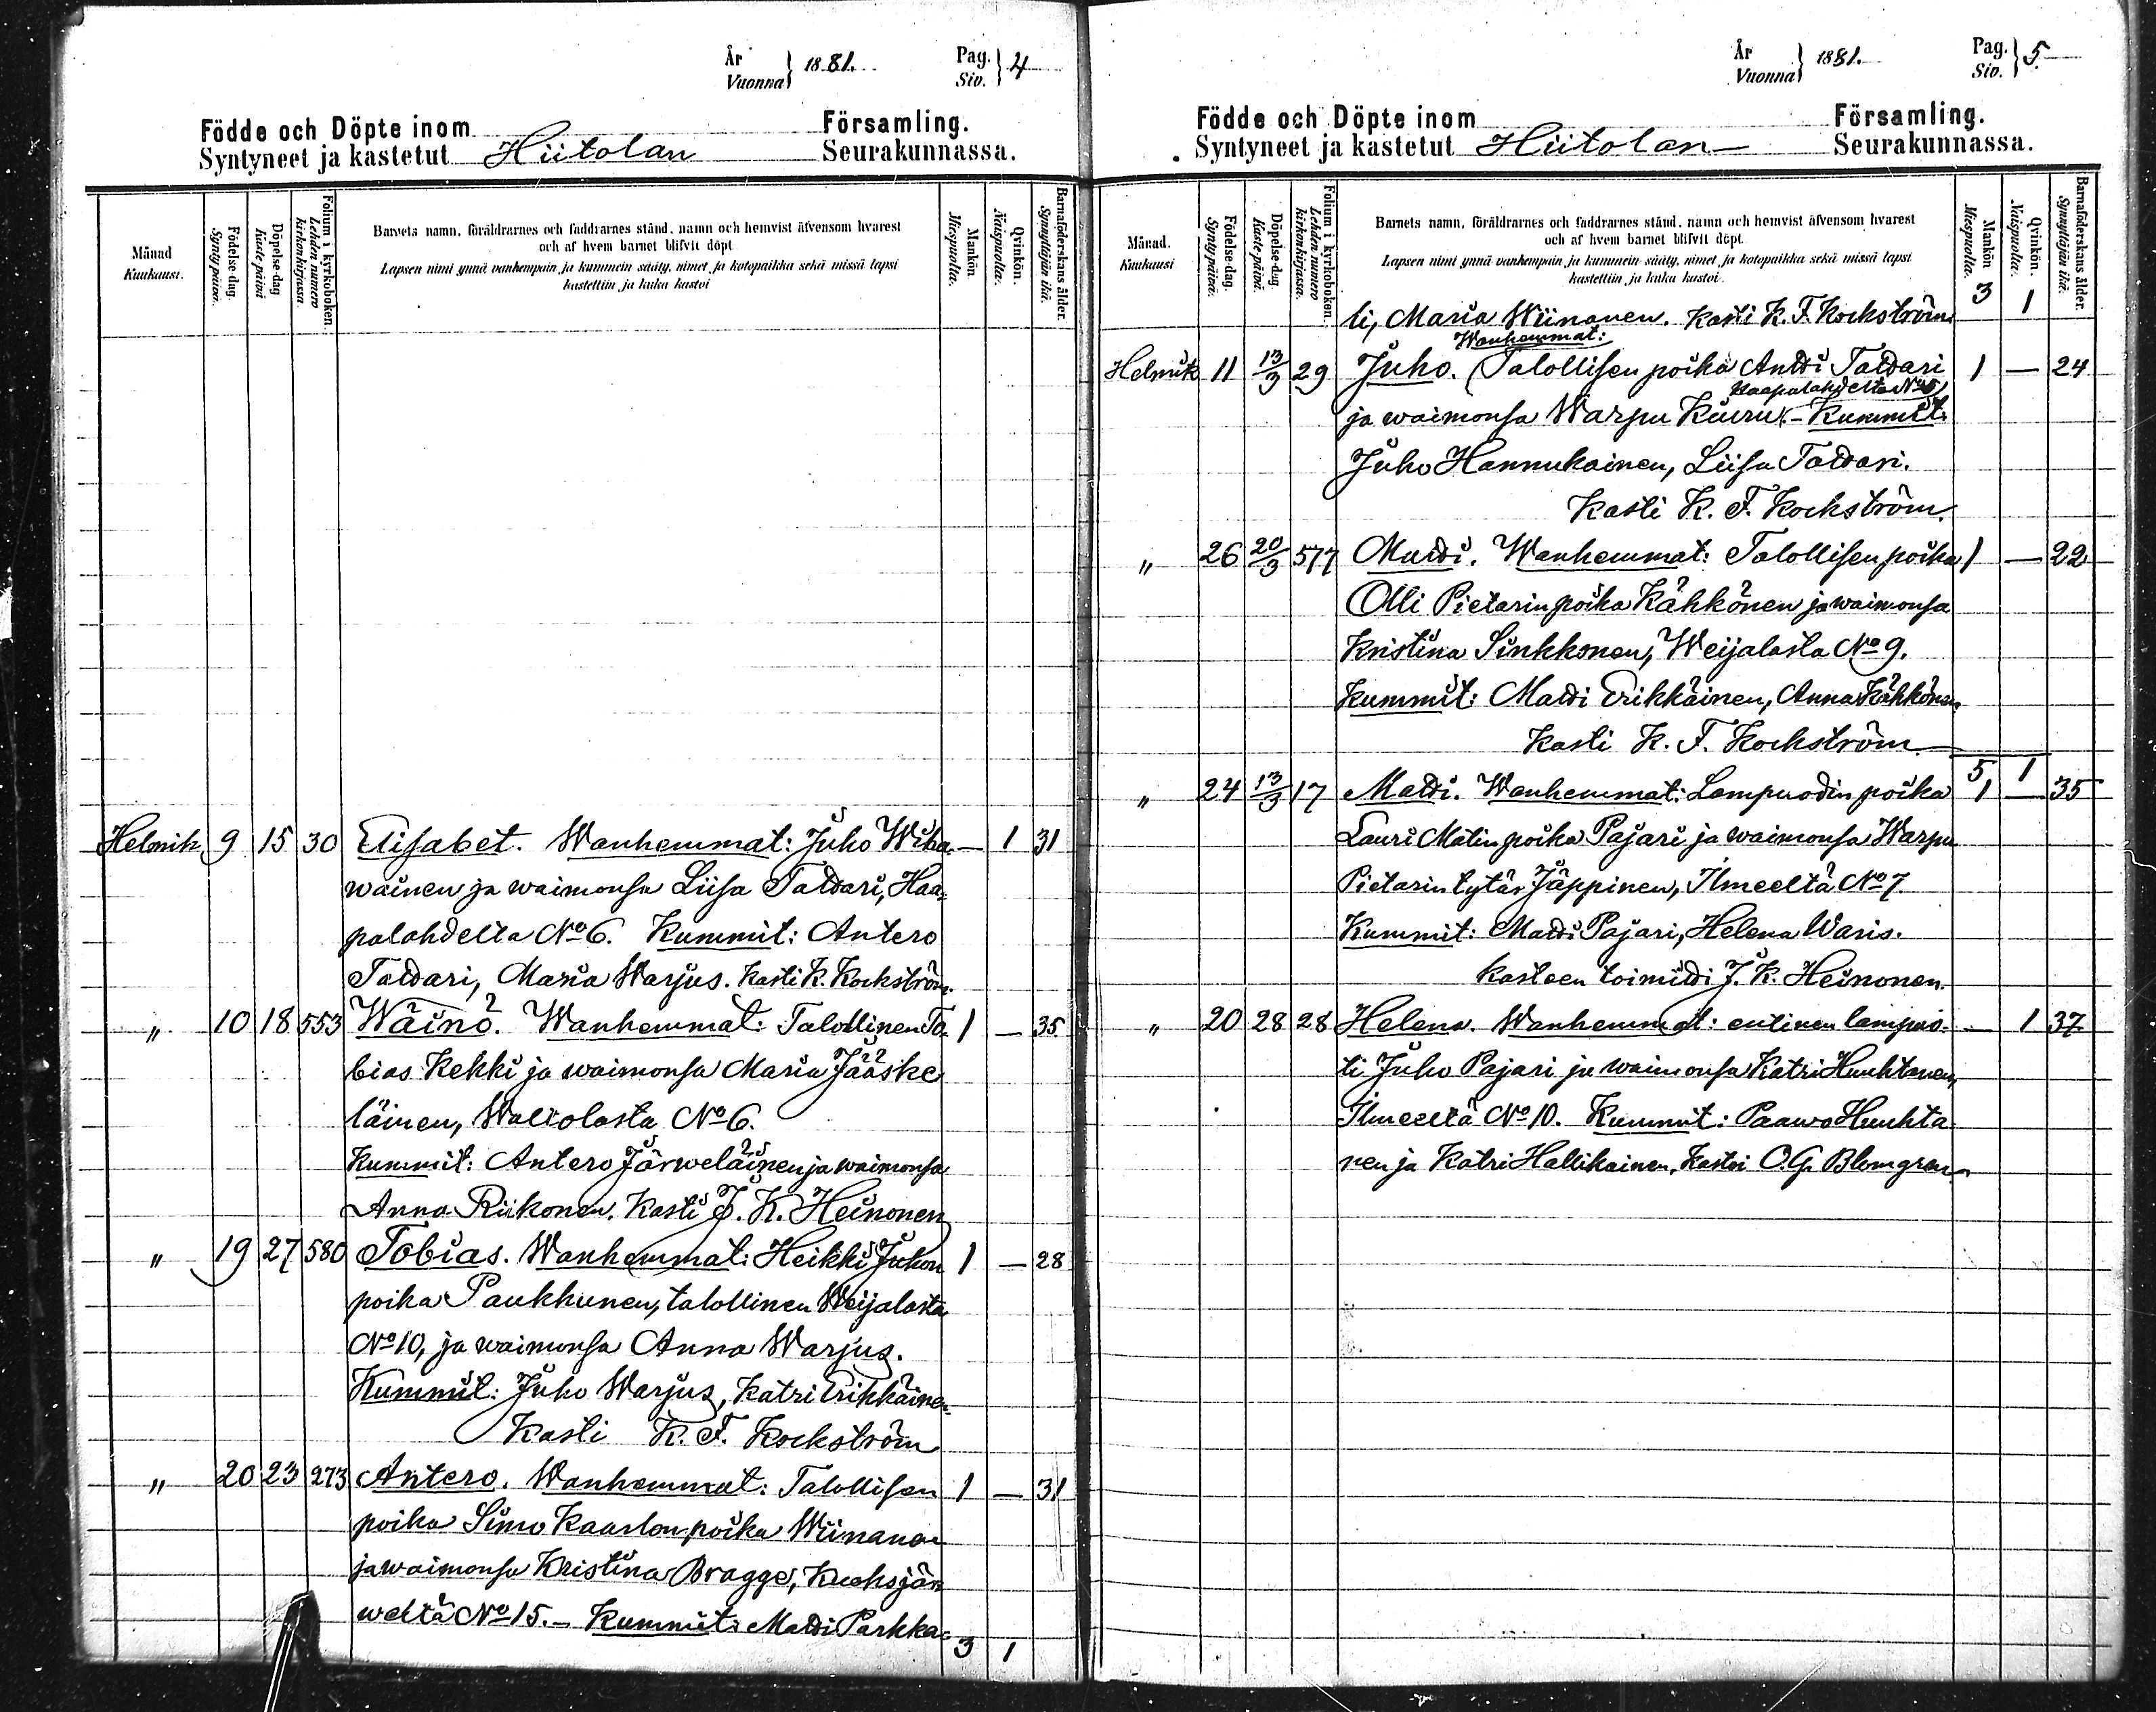 År
Vuonna } 1881.
Pag.
Siv. } 4
Födde och Döpte inom Församling.
Syntyneet ja kastetut Hiitolan Seurakunnassa.
Månad
Kuukausi.
Födelse-dag.
Syntypäivä.
Döpelse-dag
Kaste päivä
Folium i kyrkoboken.
Lehden numero
kirkonkirjassa.
Barnets namn, föräldrarnes och faddrarnes stånd, namn och hemvist äfvensom hvarest
och af hvem barnet blifvit döpt
Lapsen nimi ynnä vanhempain ja kummein sääty, nimet ja kotopaikka sekä missä lapsi
kastettiin ja kuka kastoi
Mankön.
Miespuolta.
Qvinkön.
Naispuolta.
Barnaföderskans ålder.
Synnyttäjän ikä.
Helmik 9 15 30 Elisabet. Wanhemmat: Juho Wiha- — 1 31
wainen ja waimonsa Liisa Tattari, Haa-
palahdelta No 6. Kummit: Antero
Tattari, Maria Warjus. Kasti K. Kockström.
" 10 18 553 Wäinö. Wanhemmat: Talollinen To- 1 — 35
bias Kekki ja waimonsa Maria Jääske
läinen, Waltolasta No 6.
Kummit: Antero Järweläinen ja waimonsa
Anna Riikonen. Kasti J. K. Heinonen
" 19 27 580 Tobias. Wanhemmat: Heikki Juhon 1 — 28
poika Paukkunen, talollinen Weijalasta
No 10, ja waimonsa Anna Warjus.
Kummit: Juho Warjus, Katri Erikkäinen.
Kasti K. F. Kockström
" 20 23 273 Antero. Wanhemmat: Talollisen 1 — 31
poika Simo Kaarlon poika Wiinanen
ja waimonsa Kristina Bragge, Kuoksjär
weltä No 15. – Kummit: Matti Parkka-
3 1
År
Vuonna } 1881.
Pag.
Siv. } 5.
Födde och Döpte inom Församling.
Syntyneet ja kastetut Hiitolan Seurakunnassa.
Månad.
Kuukausi
Födelse-dag.
Syntypäivä.
Döpelse-dag.
Kaste päivä.
Folium i kyrkoboken.
Lehden numero
kirkonkirjassa.
Barnets namn, föräldrarnes och faddrarnes stånd, namn och hemvist äfvensom hvarest
och af hvem barnet blifvit döpt.
Lapsen nimi ynnä vanhempain ja kummein sääty, nimet ja kotopaikka sekä missä lapsi
kastettiin ja kuka kastoi.
Mankön
Miespuolta.
Qvinkön.
Naispuolta.
Barnaföderskans ålder.
Synnyttäjän ikä.
3 1
li, Maria Wiinanen. Kasti K. F. Kockström
Wanhemmat:
Helmik 11 13/3 29 Juho. Talollisen poika Antti Tattari 1 — 24
Haapalahdelta No 5
ja waimonsa Warpu Kiuru. – Kummit:
Juho Hannukainen, Liisa Tattari.
Kasti K. F. Kockström.
" 26 20/3 577 Matti. Wanhemmat: Talollisen poika 1 — 22
Olli Pietarin poika Kähkönen ja waimonsa
Kristina Sinkkonen, Weijalasta No 9.
Kummit: Matti Erikkäinen, Anna Kähkönen
Kasti K. F. Kockström
5 1
" 24 13/3 17 Matti. Wanhemmat: Lampuodin poika 1 — 35
Lauri Matin poika Pajari ja waimonsa Warpu
Pietarin tytär Jäppinen, Ilmeeltä No 7.
Kummit: Matti Pajari, Helena Waris.
Kasteen toimitti J. K. Heinonen.
" 20 28 28 Helena. Wanhemmat: entinen lampuo- — 1 37
ti Juho Pajari ja waimonsa Katri Huuhtanen,
Ilmeeltä No 10. Kummit: Paawo Huuhta
nen ja Katri Hallikainen, Kastoi O. G. Blomgren